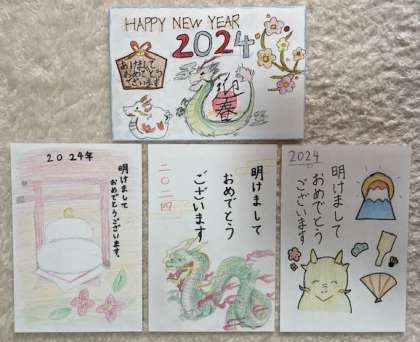 HAPPY NEW YEAR
2024
あけまして
おめでとう
ございます
迎
春
2024年
明けまして
おめでとうございます。
二〇二四
明けまして
おめでとう
ございます
2024
明けまして
おめでとう
ございます